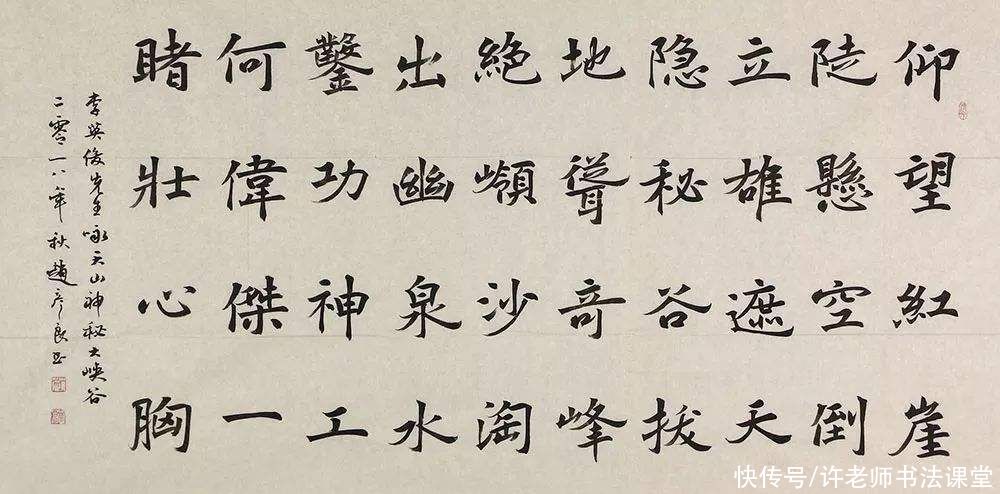 仰望紅崖
陡懸空倒
立雄遮天
隐秘谷拔
地聳竒峰
絶嶺沙淘
出幽泉水
鑿功神工
何偉傑一
睹壯心胸
李英俊先生咏天山神秘大峡谷
二零一八年秋趙彦良书
快传号/许老师书法课堂